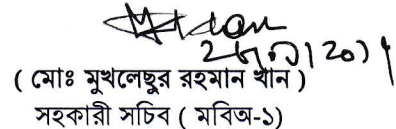 ( মোঃ মুখলেছুর রহমান খান )
সহকারী সচিব ( মবিঅ-১)